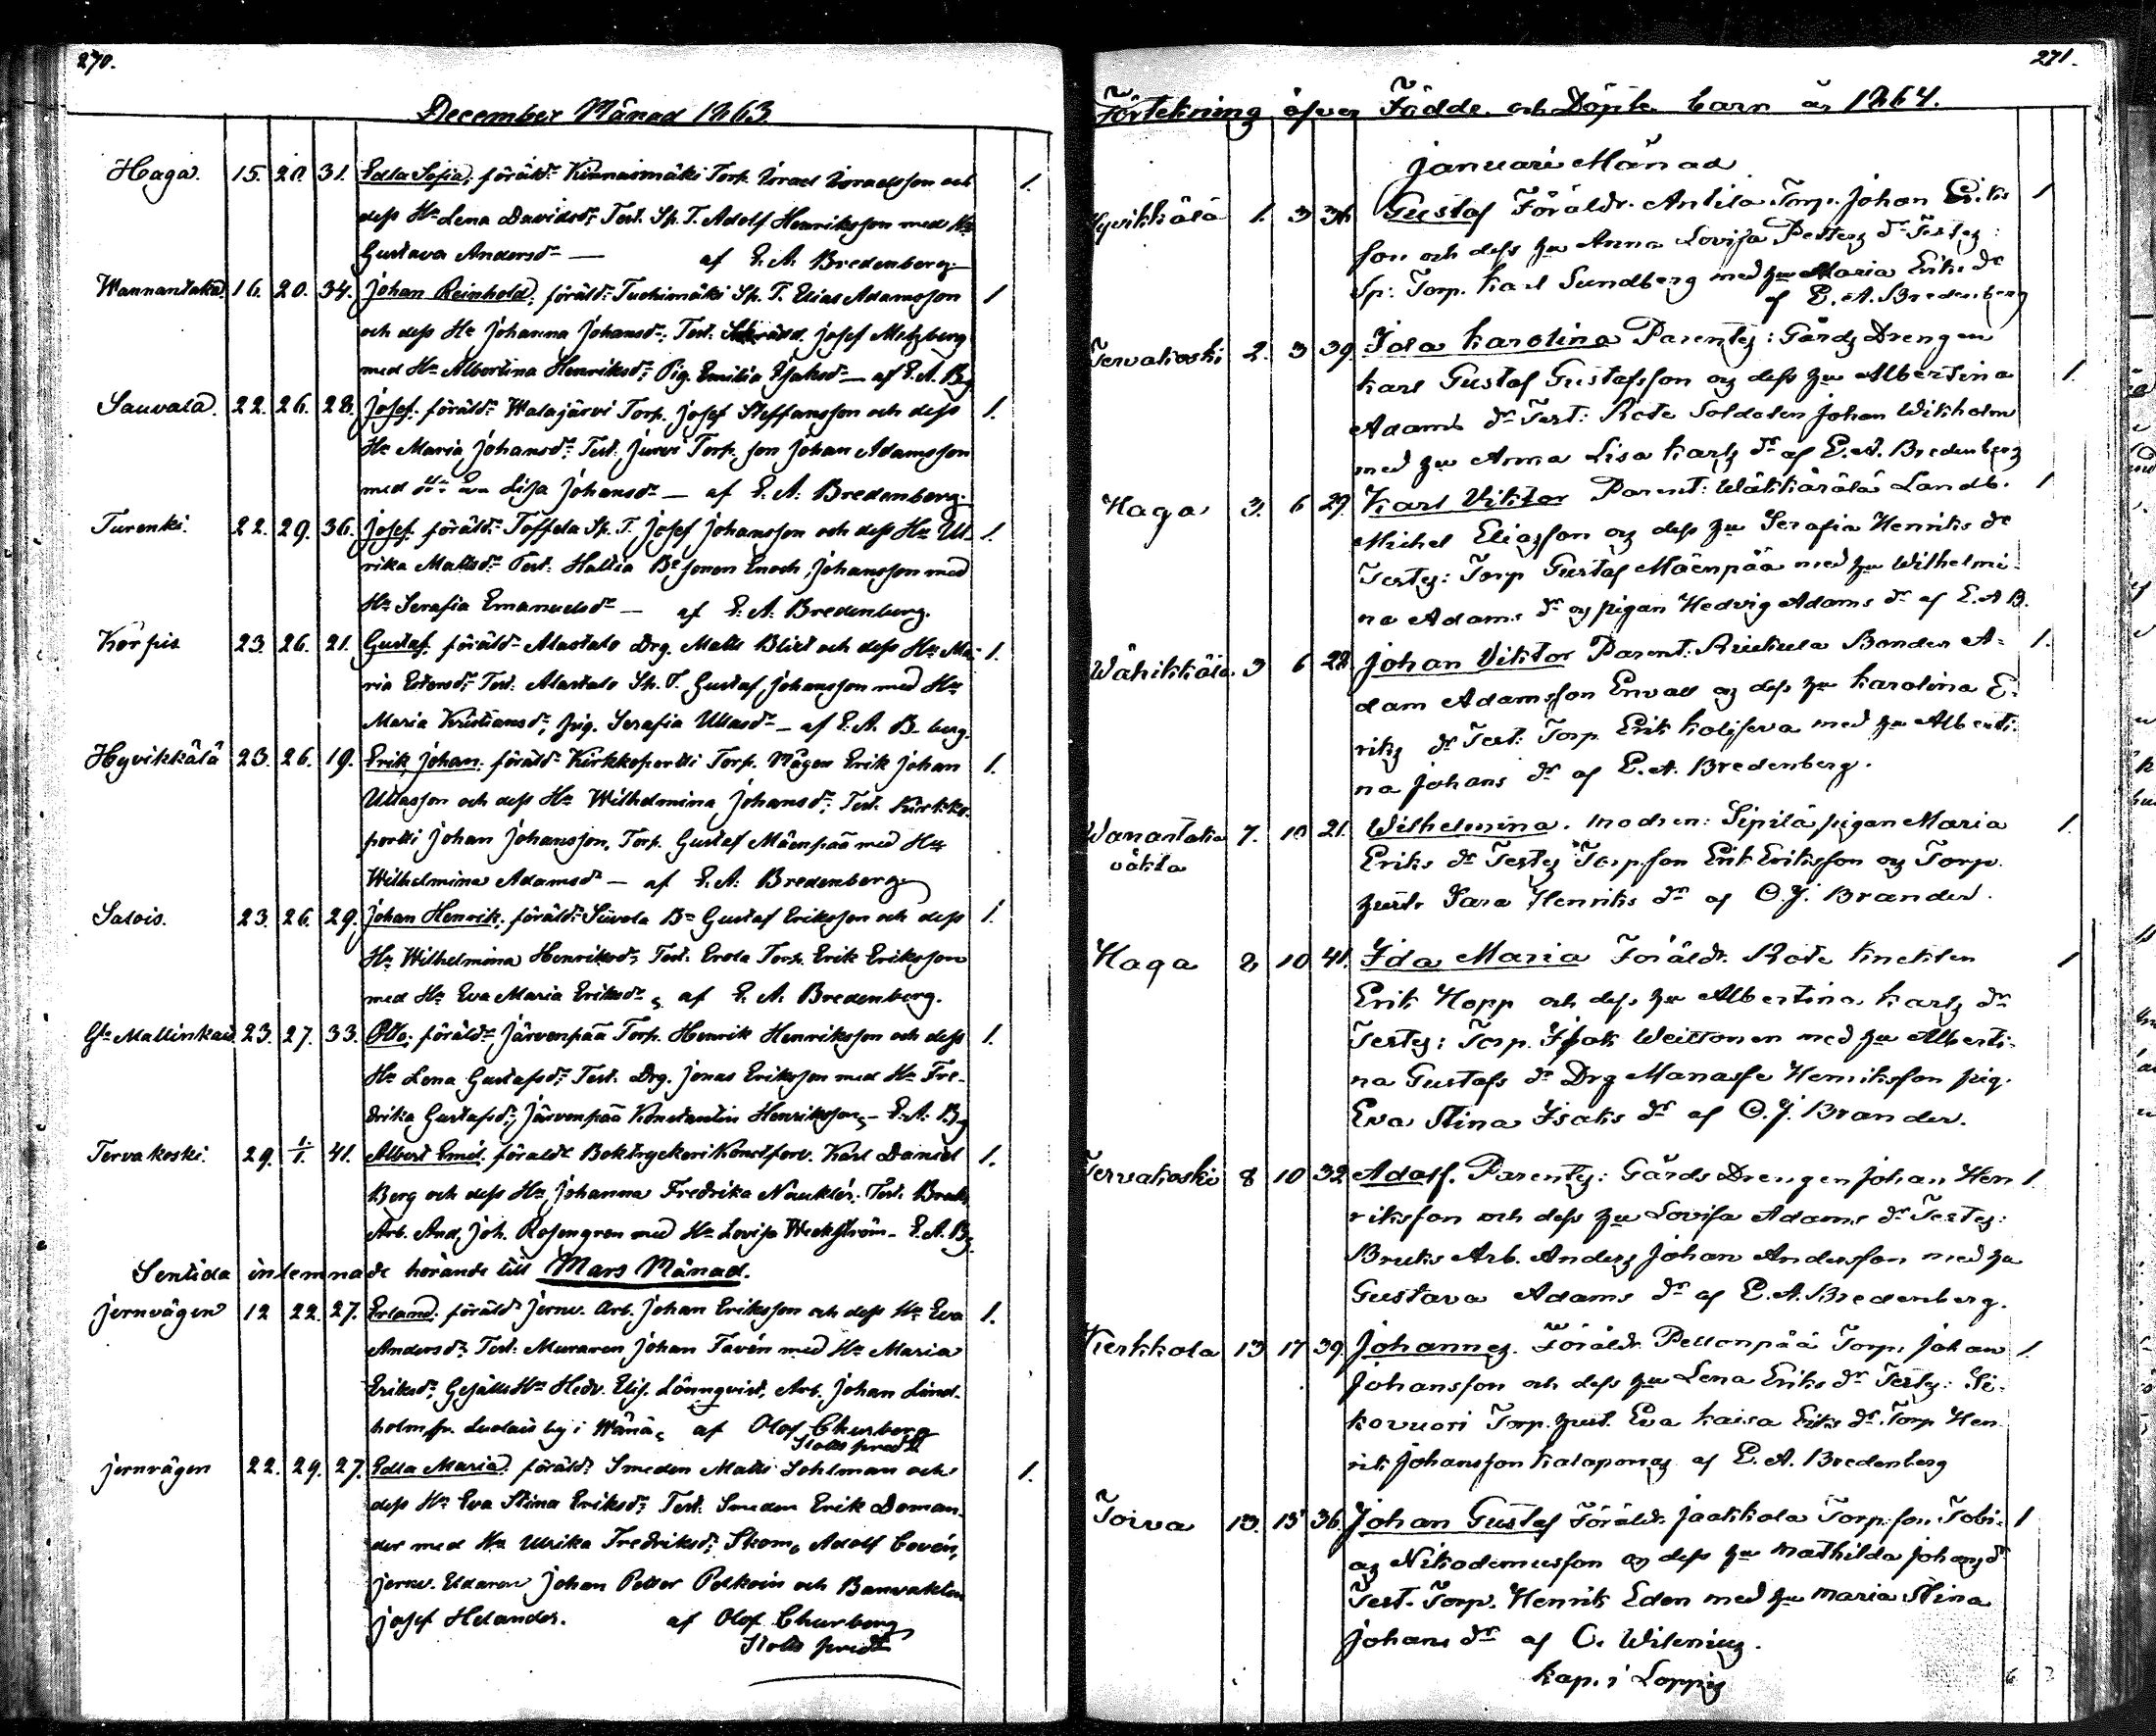 270.
December Månad 1863
Haga. 15. 20. 31. Edla Sofia, föräldr Kinnaimäki Torp. Israel Israelsson och 1.
dess Hu Lena Davidsdr; Test. Sp. T. Adolf Henriksson med Hu
Gustava Andersdr — af E. A. Bredenberg
Wannantaka 16. 20. 34. Johan Reinhold, föräldr Tuohimäki Sp. T. Elias Adamsson 1
och dess Hu Johanna Johansdr; Test. Skrädd. Josef Metzberg
med Hu Albertina Henriksdr; Pig. Emilia Isaksdr — af E. A. Bg
Sauvala. 22. 26. 28. Josef. föräldr Walajärvi Torp. Josef Steffansson och dess 1.
Hu Maria Johansdr Test. Jurvi Torp. son Johan Adamsson
med Hu Eva Lisa Johansdr — af E. A. Bredenberg.
Turenki. 22. 29. 36. Josef. föräldr Toffela Sp. T. Josef Johansson och dess Hu Ul- 1.
rika Mattsdr Test. Hattia Be sonen Enoch Johansson med
Hu Serafia Emanuelsdr — af E. A. Bredenberg.
Körpis 23. 26. 21. Gustaf. föräldr Alastalo Drg. Matts Blixt och dess Hu Ma- 1.
ria Estersdr Test. Alastalo Sp. T. Gustaf Johansson med Hu
Maria Kristiansdr, pig. Serafia Ullasdr — af E. A. B-berg.
Hyvikkälä 23. 26. 19. Erik Johan. föräldr Kirkkopertti Torp. Mågen Erik Johan 1.
Ullasson och dess Hu Wilhelmina Johansdr; Test. Kirkko-
pertti Johan Johansson, Torp. Gustaf Mäenpää med Hu
Wilhelmina Adamsdr — af E. A. Bredenberg
Salois. 23. 26. 29. Johan Henrik, föräldr Siivola Be Gustaf Eriksson och dess 1.
Hu Wilhelmina Henriksdr, Test. Erola Torp. Erik Eriksson
med Hu Eva Maria Eriksdr, af E. A. Bredenberg.
Ge Mallinkais. 23. 27. 33. Otto. föräldr Järvenpää Torp. Henrik Henriksson och dess 1.
Hu Lena Gustafsdr; Test. Drg. Jonas Eriksson med Hu Fre-
drika Gustafsdr; Järvenpää Konstantin Henriksson — E. A. Bg
Tervakoski. 29. 1/1. 41. Albert Emil. föräldr Boktryckeri Konstförv. Karl Daniel 1.
Berg och dess Hu Johanna Fredrika Naukler. Test. Bruks
Arb. And. Joh. Rosengren med Hu Lovisa Weckström — E. A. Bg
Sentida inlemnade hörande till Mars Månad.
Jernvägen 12 22. 27. Erland. föräldr Jernv. Arb. Johan Eriksson och dess Hu Eva 1.
Andersdr Test. Muraren Johan Favén med Hu Maria
Eriksdr, Gesälls Hu Hedv. Elis. Lönnqvist, Arb. Johan Lind-
holm fr. Luolais by i Wånå, af Olof Churberg
Slotts pred.
Jernvägen 22. 29. 27. Edla Maria. föräldr Smeden Matts Sohlman och 1.
dess Hu Eva Stina Eriksdr; Test. Smeden Erik Doman-
der med Hu Ulrika Fredriksdr; Skom. Adolf Covén,
Jernv. Eldaren Johan Petter Pelkoin och Banvakten
Josef Helander. af Olof Churberg
Slotts pred.
271.
Förtekning öfver Födde och Döpte barn år 1864.
Januari Månad
Hyvikkälä 1. 3 36 Gustaf Föräldr. Antila Torp. Johan Eriks 1
son och dess hu Anna Lovisa Petters dr Testes:
Sp: Torp. Karl Sundberg med hu Maria Eriks dr
af E. A. Bredenberg
Tervakoski 2. 3 39. Ida Karolina Parentes: Gårds Drengen
Karl Gustaf Gustafsson og dess hu Albertina 1.
Adams dr Test: Rote Soldaten Johan Wikholm
med hu Anna Lisa Karls dr af E. A. Bredenberg
Haga 3. 6 29. Karl Viktor Parent: Wäkkärälä Landb. 1
Michel Eliasson og dess hu Serafia Henriks dr
Testes: Torp Gustaf Mäenpää med hu Wilhelmi-
na Adams dr og pigan Hedvig Adams dr af E. A B.
Wähikkälä 3 6 28 Johan Viktor Parent: Ruukula Bonden A- 1.
dam Adamsson Envall og dess hu Karolina E-
riks dr Test: Torp. Erik Koliseva med hu Alberti-
na Johans dr af E. A. Bredenberg.
Wanantaka 7. 10 21. Wilhelmina. Modren: Sipilä pigan Maria 1.
våkta Eriks dr Testes Torp.son Erik Eriksson og Torp.
hustr. Sara Henriks dr af O. J. Brander.
Haga 8 10 41. Ida Maria Föräldr. Rote Knekten 1
Erik Hopp och dess hu Albertina Karls dr
Testes: Torp. Isak Weittonen med hu Alberti-
na Gustafs dr Drg Manasse Henriksson pig.
Eva Stina Isaks dr af O. J. Brander.
Tervakoski 8 10 32 Adolf. Parentes: Gårds Drengen Johan Hen 1.
riksson och dess hu Lovisa Adams dr Testes:
Bruks Arb. Anders Johan Andersson med hu
Gustava Adams dr af E. A. Bredenberg.
Kerkkola 13 17 39. Johannes. Föräldr Pellonpää Torp. Johan 1.
Johansson och dess hu Lena Eriks dr Testes: Si-
kovuori Torp. hust. Eva Kaisa Eriks dr. Torp Hen-
rik Johansson Kalapong af E. A. Bredenberg
Toiva 13. 15 36. Johan Gustaf Föräldr. Jaakkola Torp.son Tobi- 1
as Nikodemusson og dess hu Mathilda Johansdr
Test. Torp. Henrik Eden med hu Maria Stina
Johans dr af C. Wilenius.
Kap. i Loppis